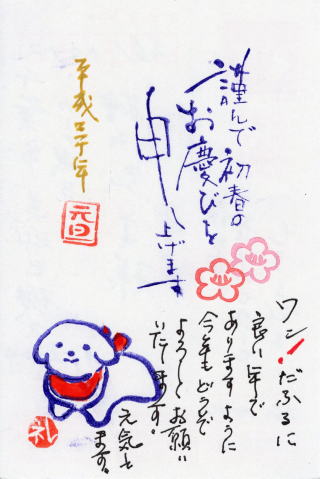 謹んで初春の
お慶びを
申し上げます
平成三十年
元日
ワン!だふるに
良い年で
ありますように
今年もどうぞ
よろしくお願い
いたします。
元気
ます。
礼